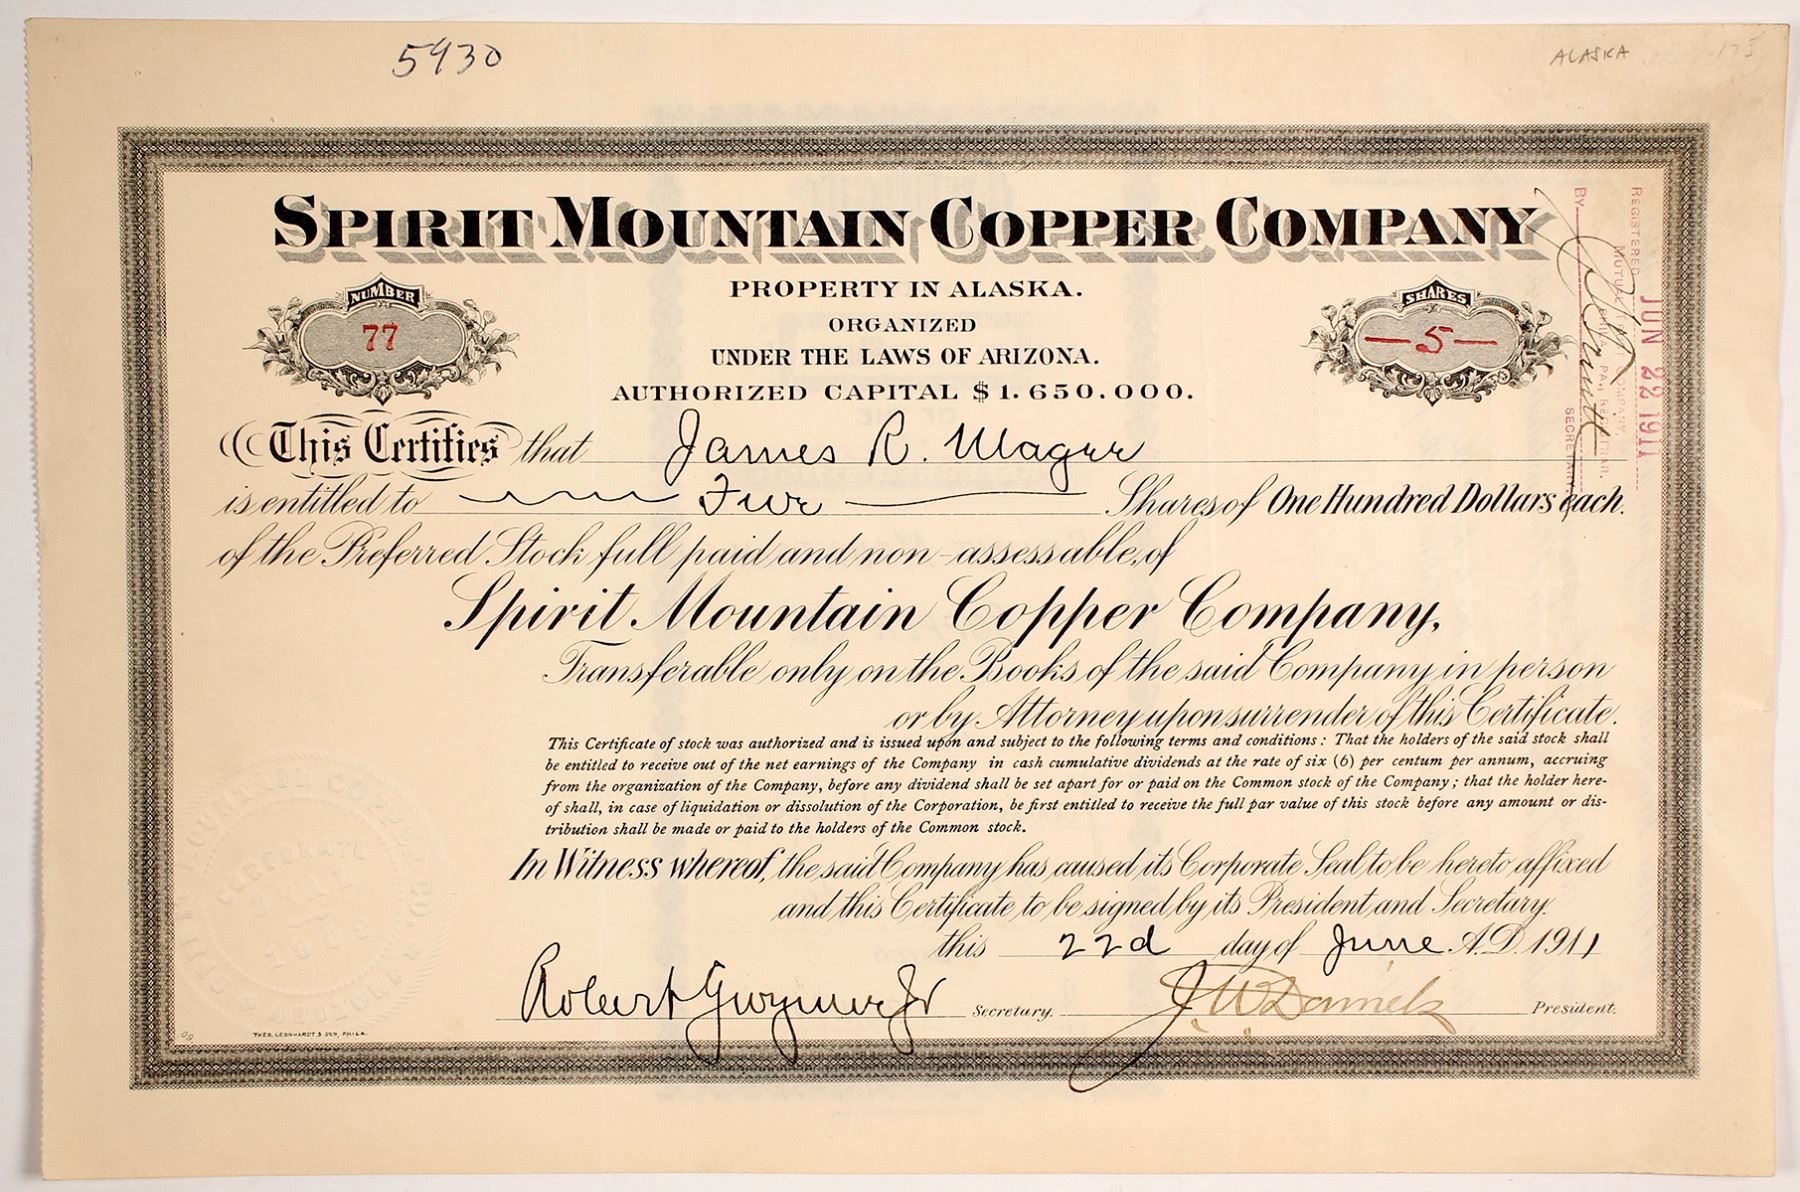 5930
ALASKA 125
SPIRIT MOUNTAIN COPPER COMPANY
NUMBER
77
PROPERTY IN ALASKA.
ORGANIZED
UNDER THE LAWS OF ARIZONA.
AUTHORIZED CAPITAL $1.650.000.
SHARES
5
This Certifies that James R. Mager
is entitled to Five Shares of One Hundred Dollars each.
of the Preferred Stock full paid and non-assessable, of
Spirit Mountain Copper Company,
Transferable only on the Books of the said Company in person
or by Attorney upon surrender of this Certificate.
This Certificate of stock was authorized and is issued upon and subject to the following terms and conditions : That the holders of the said stock shall
be entitled to receive out of the net earnings of the Company in cash cumulative dividends at the rate of six (6) per centum per annum, accruing
from the organization of the Company, before any dividend shall be set apart for or paid on the Common stock of the Company ; that the holder here-
of shall, in case of liquidation or dissolution of the Corporation, be first entitled to receive the full par value of this stock before any amount or dis-
tribution shall be made or paid to the holders of the Common stock.
In Witness whereof, the said Company has caused its Corporate Seal to be hereto affixed
and this Certificate to be signed by its President and Secretary.
this 22d day of June A.D. 1911
Robert Gwynne Jr Secretary. J. W. Daniels President.
THEO. LEONHARDT & SON, PHILA.
REGISTERED JUN 22 1911
BY
SECRETARY
CORPORATE
ARIZONA